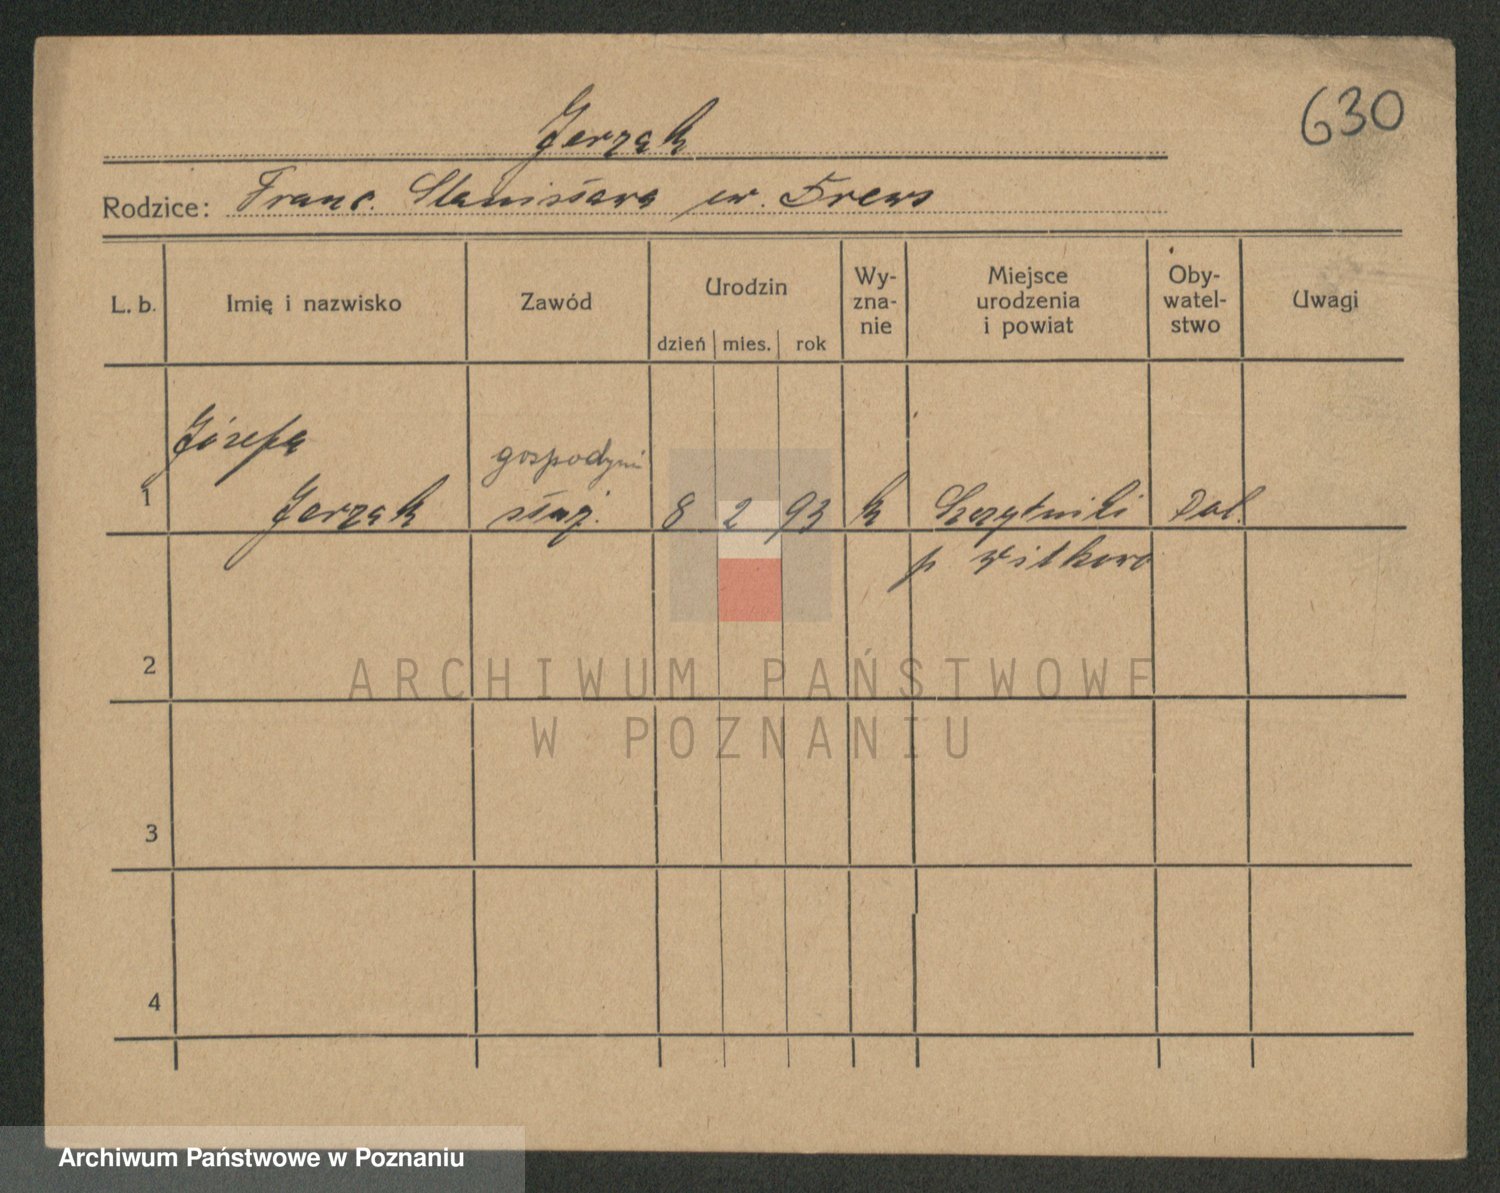 630
Jerząk
Rodzice: Franc. Stanisława ur. Drews
L. b. Imię i nazwisko Zawód Urodzin dzień mies. rok Wy-zna-nie Miejsce urodzenia i powiat Oby-watel-stwo Uwagi
Józefa
gospodyni
1 Jerząk służ. 8 2 93 k Szczytniki Pol.
p Witkowo
2
ARCHIWUM PAŃSTWOWE
W POZNANIU
3
4
Archiwum Państwowe w Poznaniu